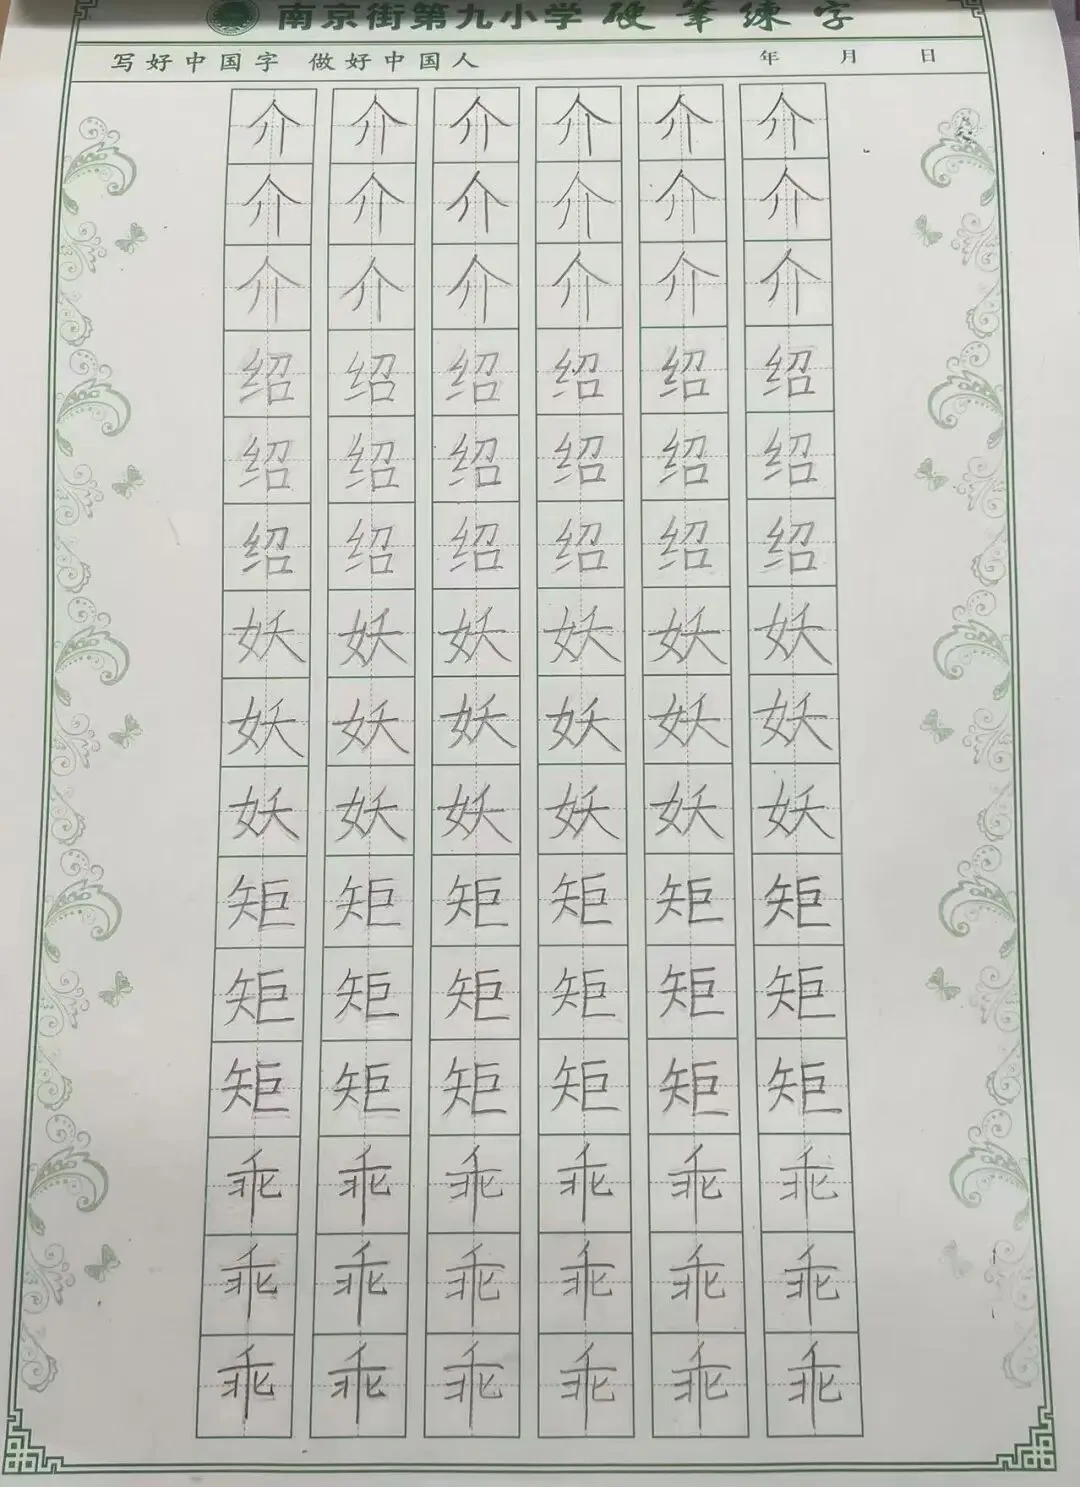 南京街第九小学 硬笔练字
写好中国字 做好中国人 年 月 日
介 介 介 介 介 介
介 介 介 介 介 介
介 介 介 介 介 介
绍 绍 绍 绍 绍 绍
绍 绍 绍 绍 绍 绍
绍 绍 绍 绍 绍 绍
妖 妖 妖 妖 妖 妖
妖 妖 妖 妖 妖 妖
妖 妖 妖 妖 妖 妖
矩 矩 矩 矩 矩 矩
矩 矩 矩 矩 矩 矩
矩 矩 矩 矩 矩 矩
乖 乖 乖 乖 乖 乖
乖 乖 乖 乖 乖 乖
乖 乖 乖 乖 乖 乖